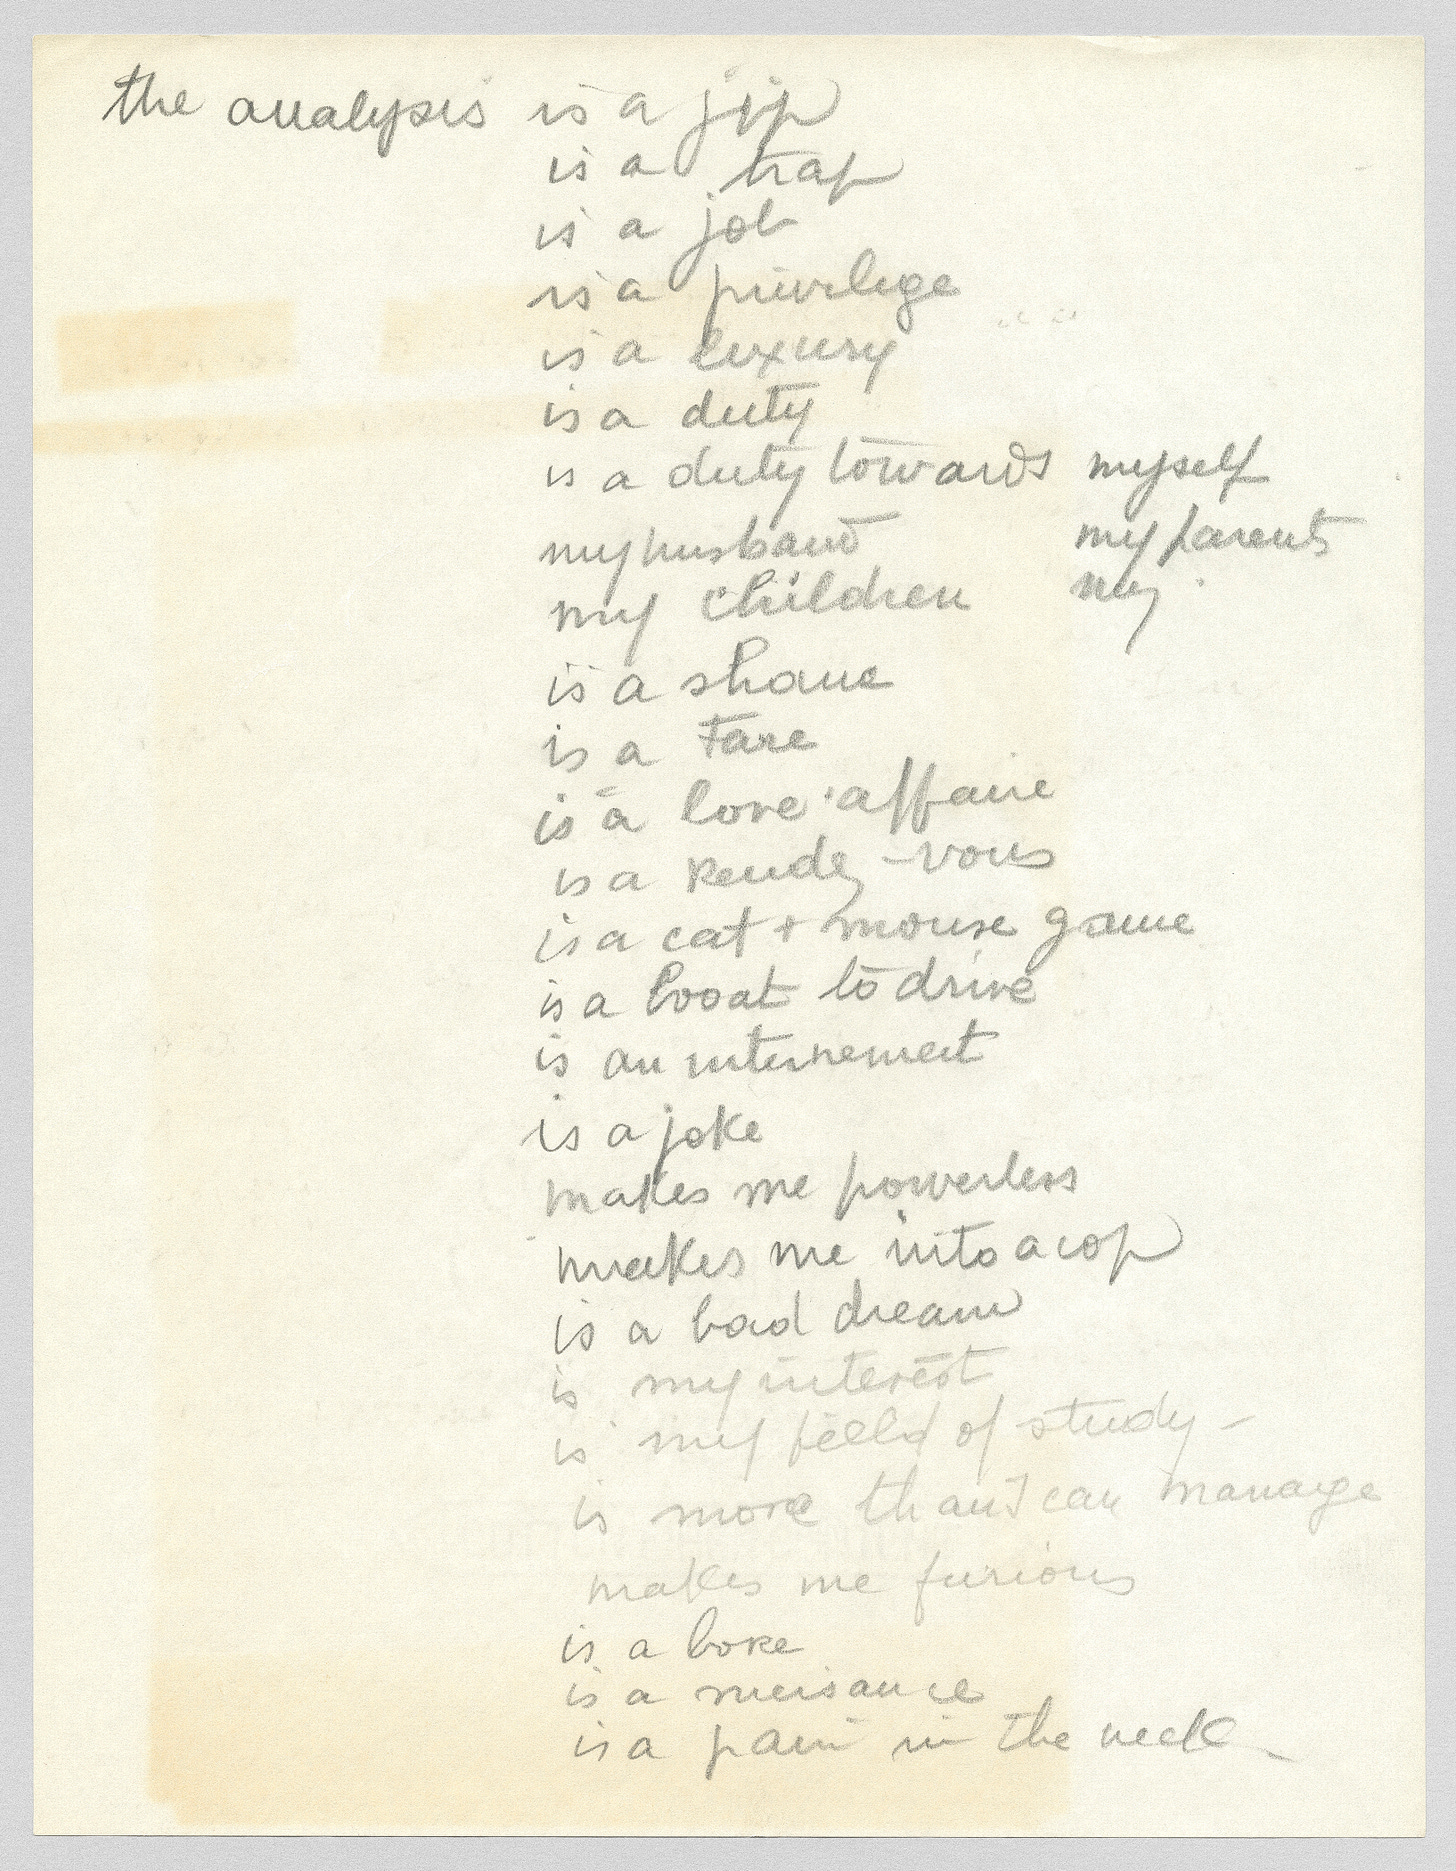 the analysis is a jip
is a trap
is a job
is a privilege
is a luxury
is a duty
is a duty towards myself
my husband my parents
my children my
is a shame
is a farce
is a love affaire
is a rendez-vous
is a cat + mouse game
is a boat to drive
is an internement
is a joke
makes me powerless
makes me into a cop
is a bad dream
is my interest
is my field of study –
is more than I can manage
makes me furious
is a bore
is a nuisance
is a pain in the neck